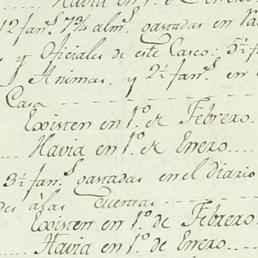 Havia en 1.º de Enero
12 fan.s 7¾ alm.s gastadas en va
s y Oficiales de este Casco; 5½ f
Animas, y 2½ fan.s en
Casa
Existen en 1.º er Febrero.
Havia en 1.º er Enero.
3½ fan.s gastadas en el diario
des alas Cuentas
Existen en 1.º de Febrero.
Havia en 1.º de Enero